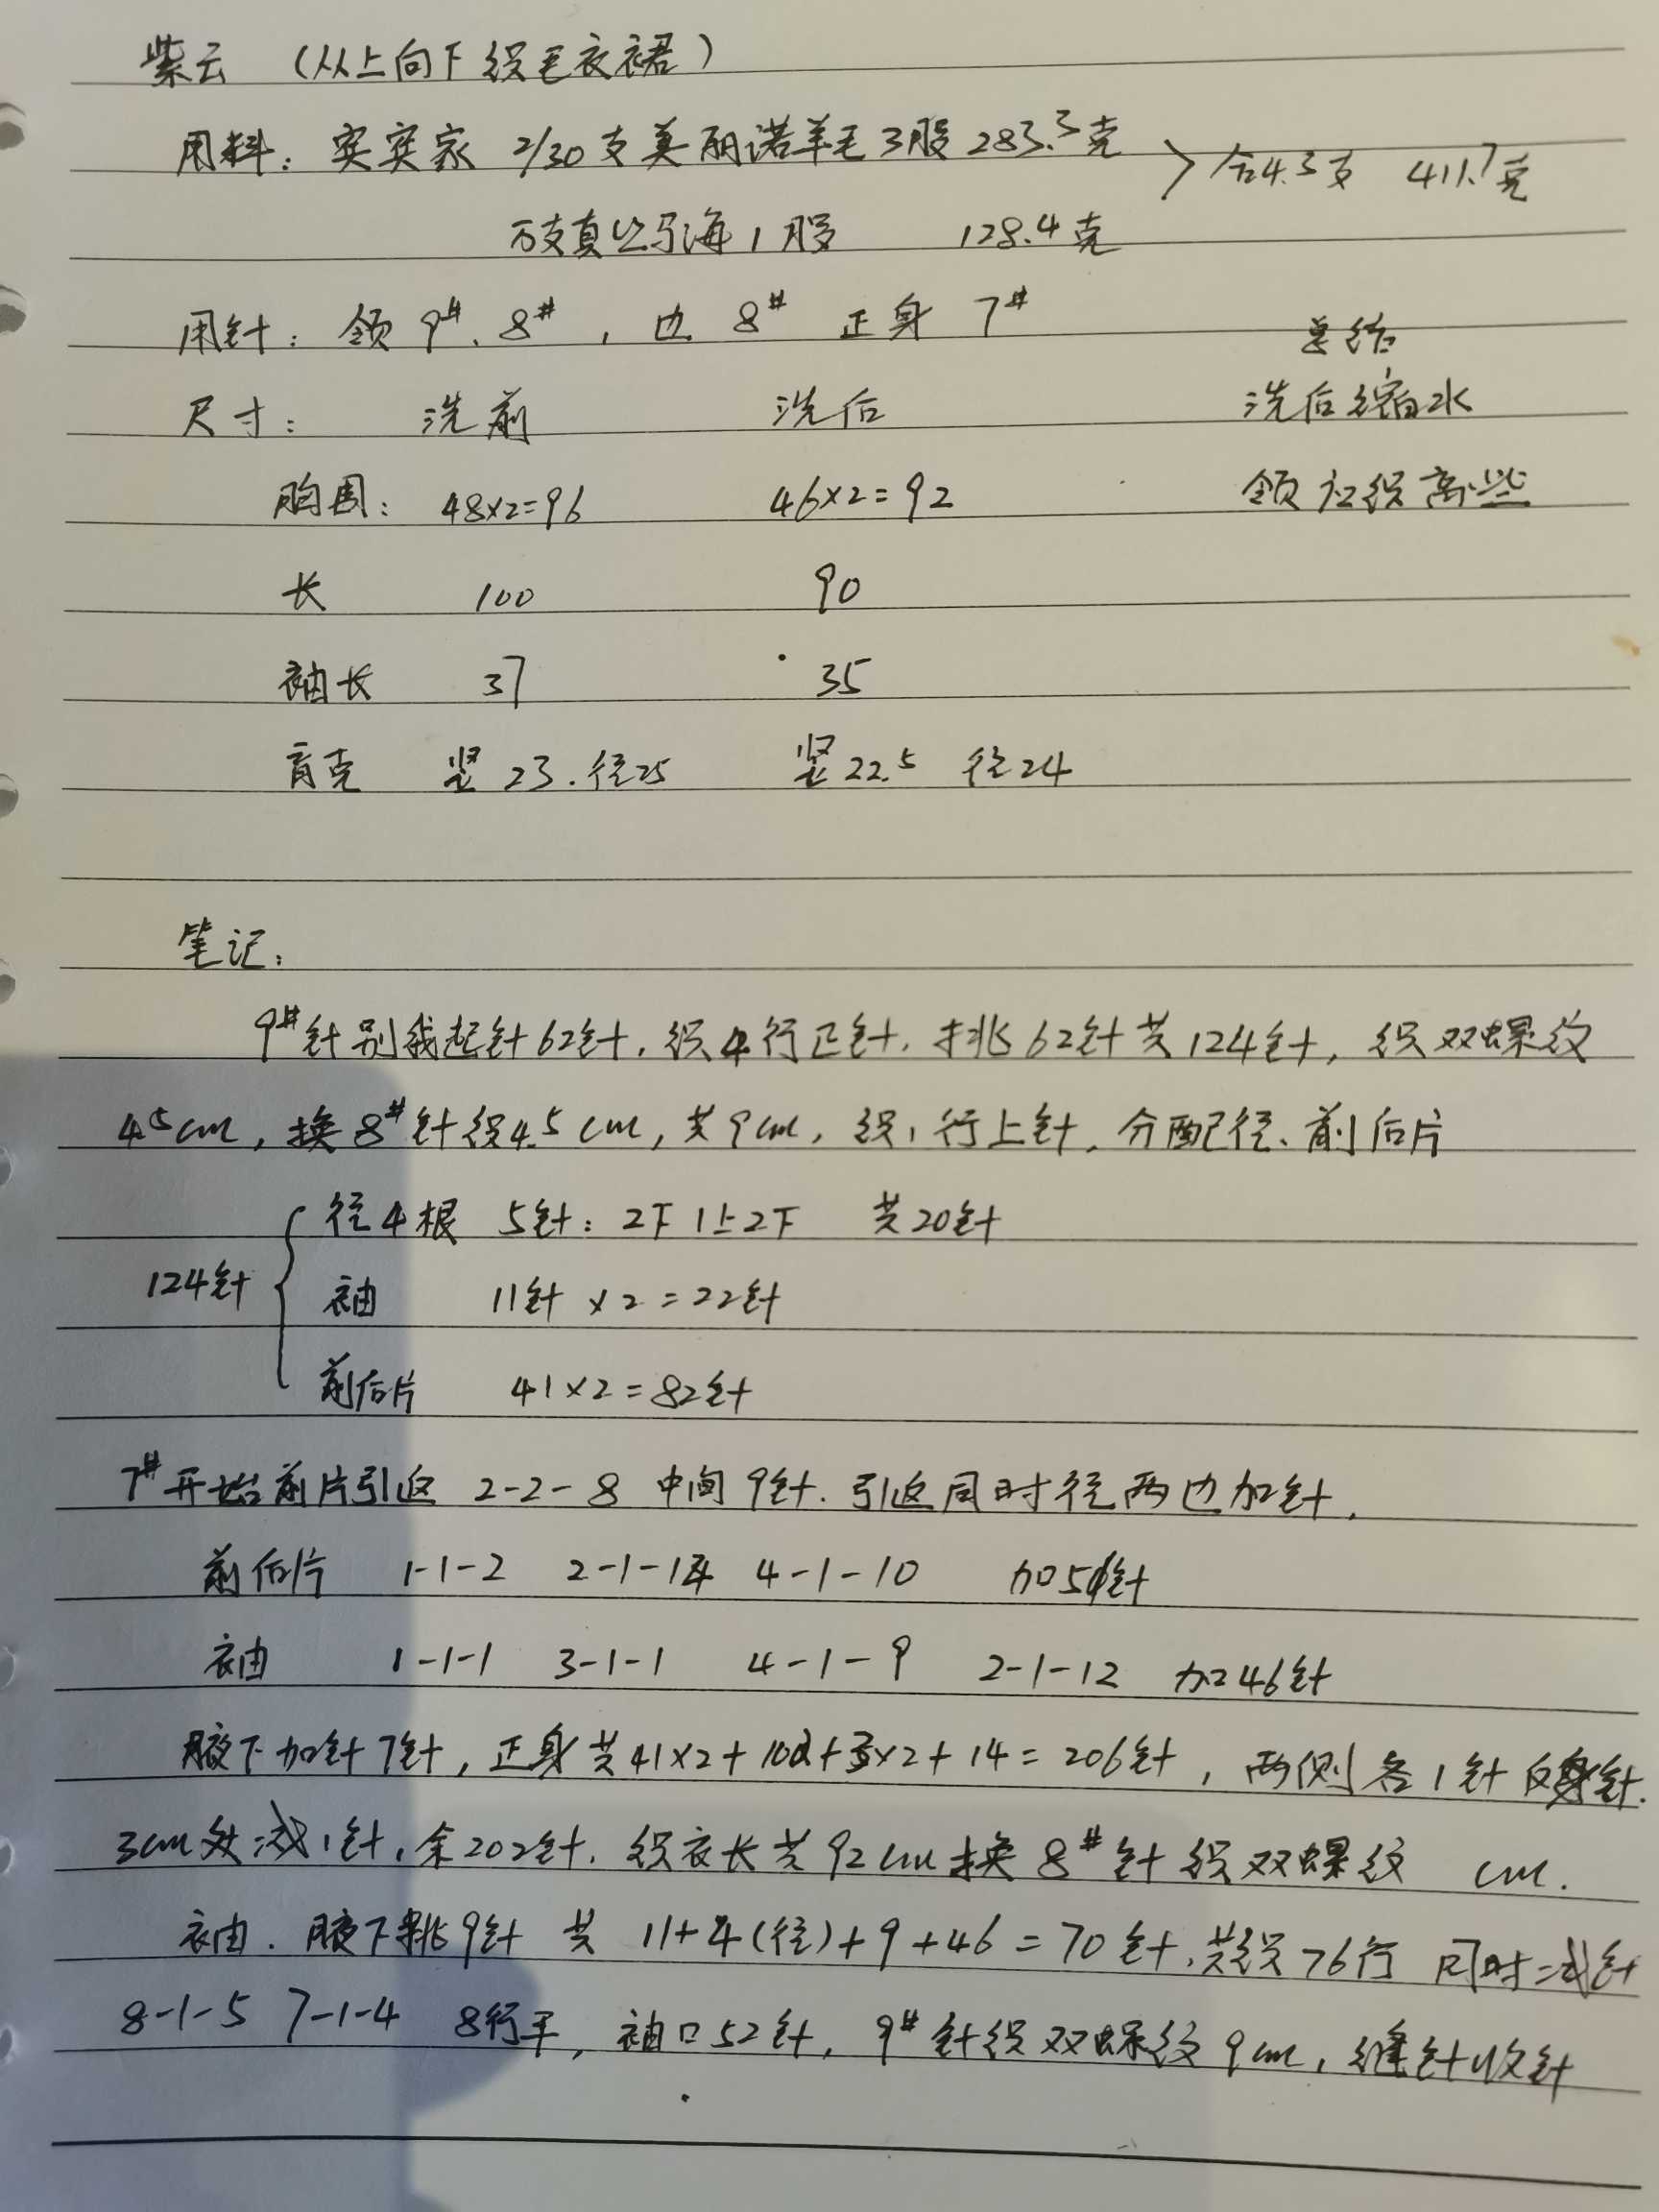 紫云 （从上向下织毛衣裙）
用料：实实家 2/30支美丽诺羊毛3股 283.3克 > 合4.3支 411.7克
万支真丝马海1股 128.4克
用针：领9#、8#，边8# 正身7# 总结
尺寸： 洗前 洗后 洗后缩水
胸围： 48×2=96 46×2=92 领应织高些
长 100 90
袖长 37 35
育克 竖23.径25 竖22.5 径24
笔记：
9#针别线起针62针，织4行正针，挑62针共124针，织双螺纹
4.5cm，换8#针织4.5cm，共9cm，织1行上针，分配径、前后片
径4根 5针：2下1上2下 共20针
124针 { 袖 11针×2=22针
前后片 41×2=82针
7#开始前片引返 2-2-8 中间9针.引返同时径两边加针，
前后片 1-1-2 2-1-14 4-1-10 加针
袖 1-1-1 3-1-1 4-1-9 2-1-12 加46针
腋下加针7针，正身共41×2+10+×2+14=206针，两侧各1针针.
3cm处减1针，余202针.织衣长共92cm换8#针织双螺纹 cm.
袖.腋下挑9针 共 11+4(径)+9+46=70针，共织76行 同时减针
8-1-5 7-1-4 8行平，袖口52针，9#针织双螺纹9cm，缝针收针